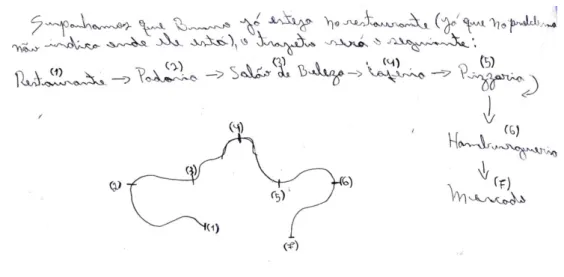 Suponhamos que Bruno já esteja no restaurante (já que no problema
não indica onde ele está), o trajeto será o seguinte:
(1) (2) (3) (4) (5)
Restaurante → Padaria → Salão de Beleza → Cafeteria → Pizzaria
(6)
Hamburgueria
(7)
Mercado
(4)
(3)
(2)
(5)
(6)
(1)
(7)